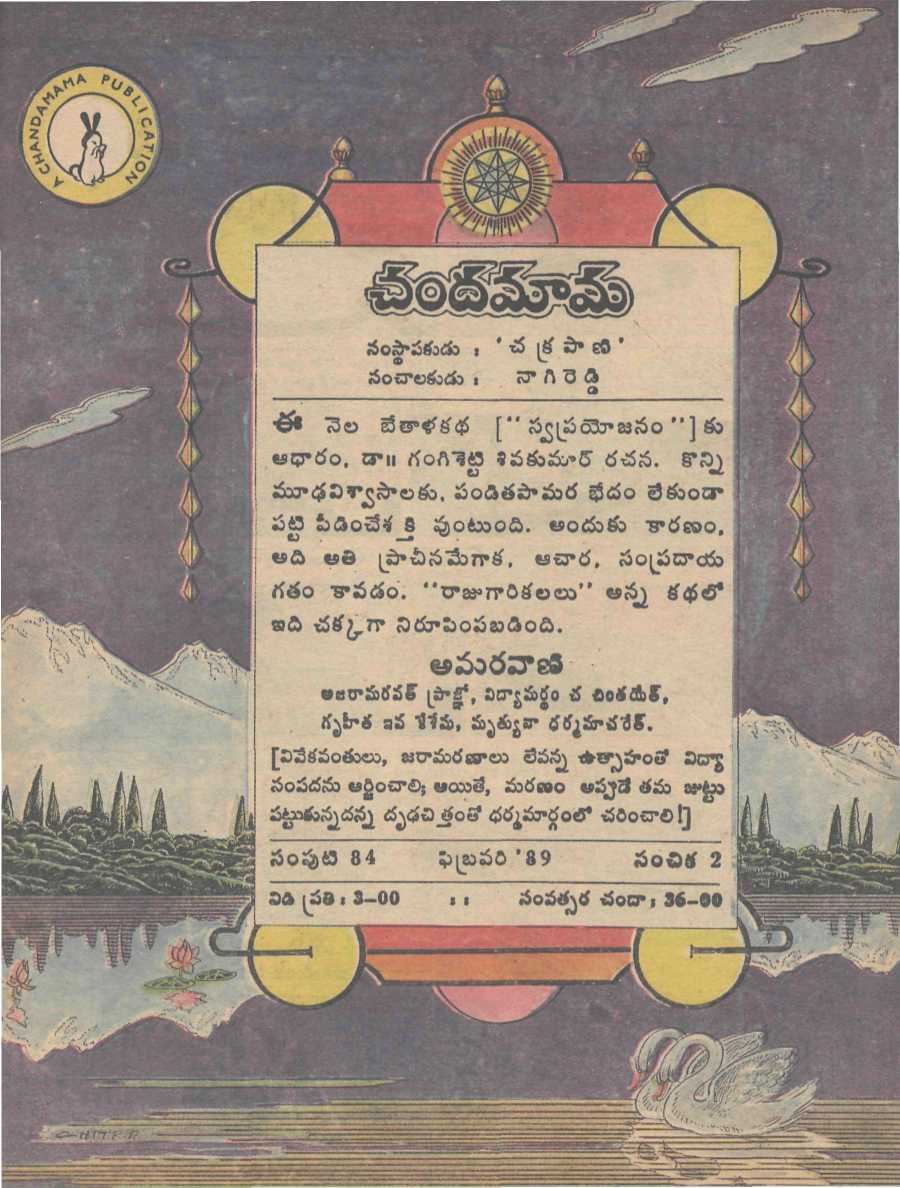 A CHANDAMAMA PUBLICATION
చందమామ
సంస్థాపకుడు : 'చక్రపాణి'
సంచాలకుడు : నాగిరెడ్డి
ఈ నెల బేతాళకథ ["స్వప్రయోజనం"] కు
ఆధారం, డా॥ గంగిశెట్టి శివకుమార్ రచన. కొన్ని
మూఢవిశ్వాసాలకు, పండితపామర భేదం లేకుండా
పట్టి పీడించేశక్తి వుంటుంది. అందుకు కారణం,
అది అతి ప్రాచీనమేగాక, ఆచార, సంప్రదాయ
గతం కావడం. "రాజుగారికలలు" అన్న కథలో
ఇది చక్కగా నిరూపింపబడింది.
అమరవాణి
అజరామరవత్ ప్రాజ్ఞో, విద్యామర్థం చ చింతయేత్,
గృహీత ఇవ కేశేషు, మృత్యునా ధర్మమాచరేత్.
[వివేకవంతులు, జరామరణాలు లేవన్న ఉత్సాహంతో విద్యా
సంపదను ఆర్జించాలి; అయితే, మరణం అప్పుడే తమ జుట్టు
పట్టుకున్నదన్న దృఢచిత్తంతో ధర్మమార్గంలో చరించాలి!]
సంపుటి 84 ఫిబ్రవరి '89 సంచిక 2
విడి ప్రతి : 3-00 :: సంవత్సర చందా : 36-00